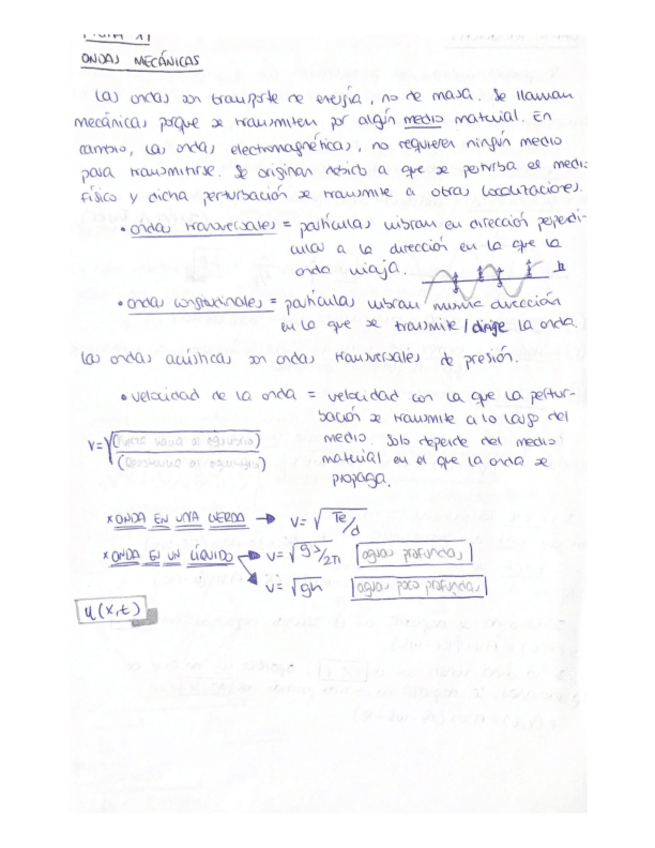 ONDAS MECÁNICAS
Las ondas son transporte de energía, no de masa. Se llaman
mecánicas porque se transmiten por algún medio material. En
cambio, las ondas electromagnéticas, no requieren ningún medio
para transmitirse. Se originan debido a que se perturba el medio
físico y dicha perturbación se transmite a otras localizaciones.
• ondas transversales = partículas vibran en dirección perpendi-
cular a la dirección en la que la
onda viaja.
• ondas longitudinales = partículas vibran misma dirección
en la que se transmite / dirige la onda
Las ondas acústicas son ondas transversales de presión.
• velocidad de la onda = velocidad con la que la pertur-
bación se transmite a lo largo del
medio. Solo depende del medio
material en el que la onda se
propaga.
v=√
* ONDA EN UNA CUERDA → v= √Te/d
* ONDA EN UN LÍQUIDO → v= √gλ/2π aguas profundas
v= √gh aguas poco profundas
y(x,t)